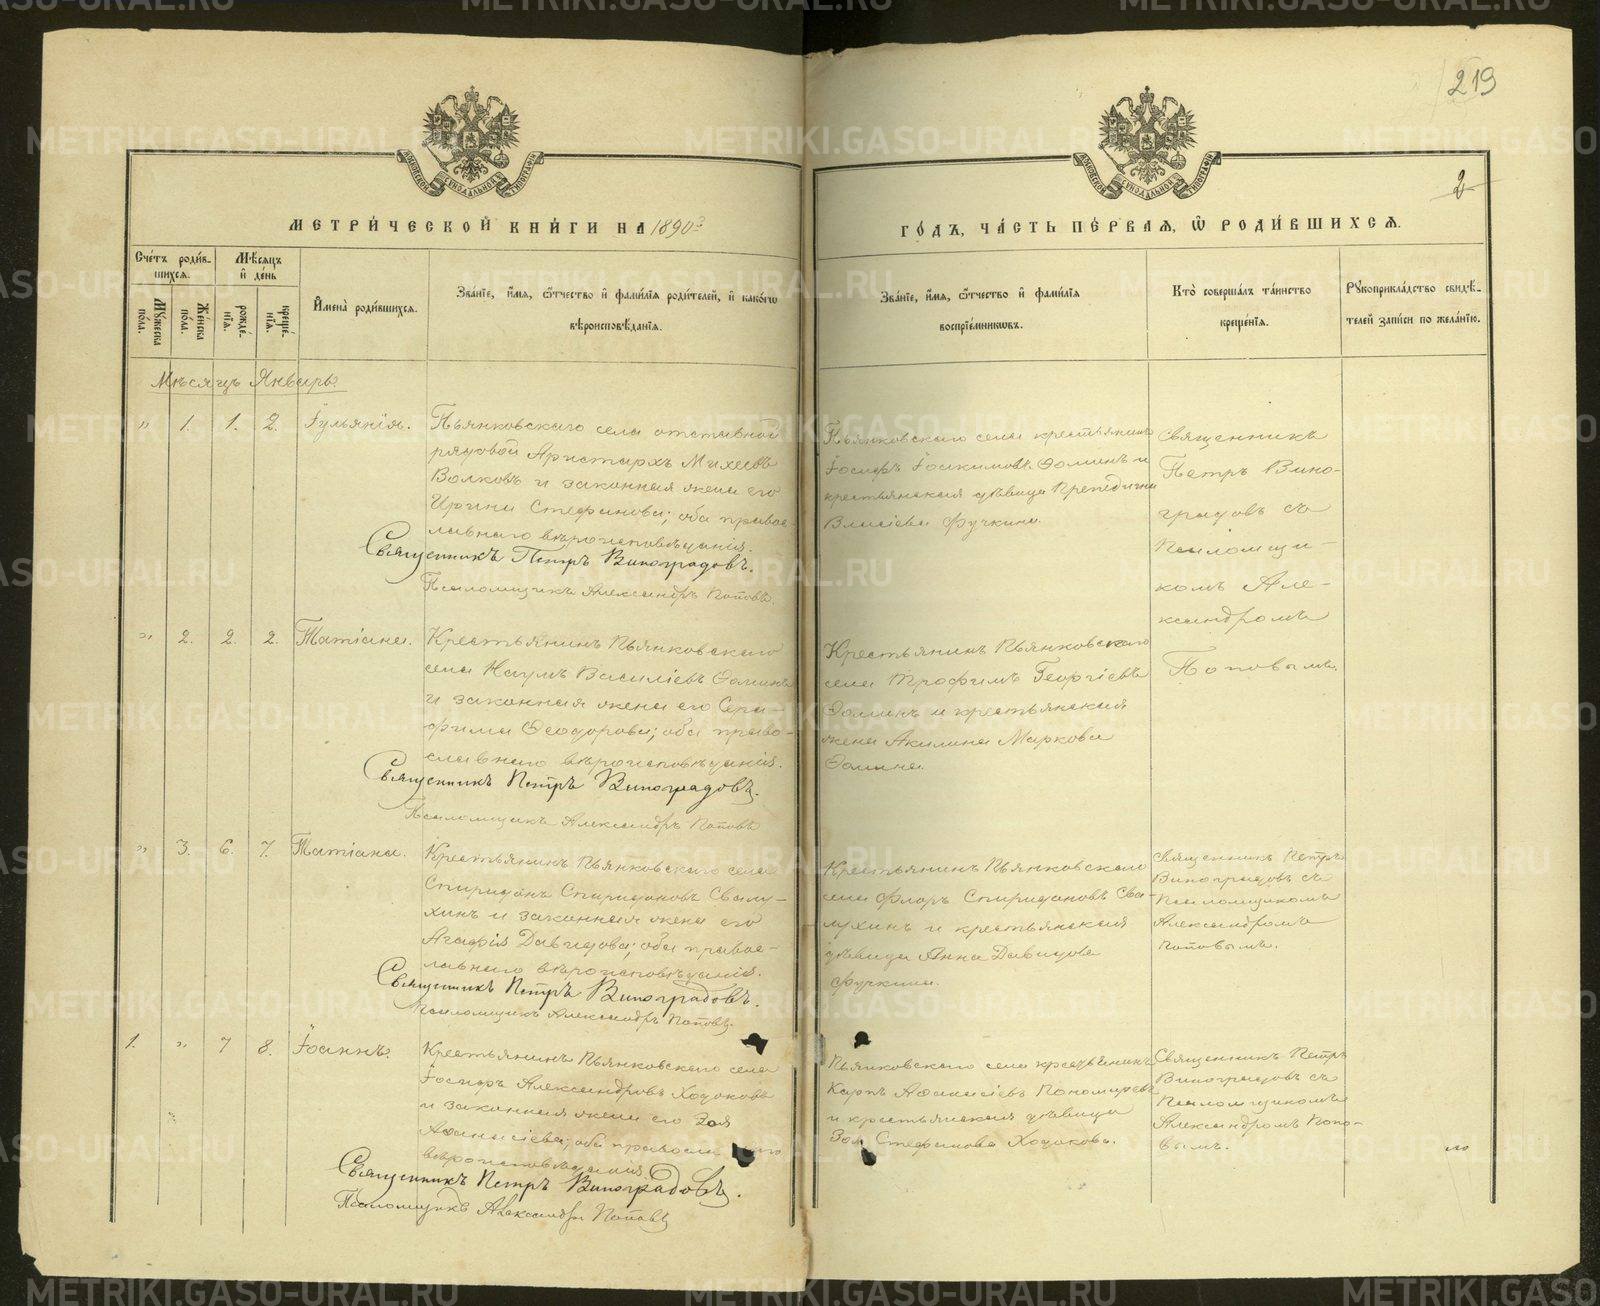 219
2
МЕТРИ́ЧЕСКОЙ КНИ́ГИ НА 1890й
ГО́ДЪ, ЧА́СТЬ ПЕ́РВАЯ, Ѡ҆ РОДИ́ВШИХСЯ.
Сче́тъ роди́в-
шихся.
Мꙋ́жеска по́ла.
Же́нска по́ла.
Мѣ́сяцъ
и҆ де́нь
рожде́-
нїя.
креще́-
нїя.
И҆мена̀ роди́вшихся.
Зва́нїе, и҆́мя, ѻ҆́тчество и҆ фами́лїя роди́телей, и҆ како́гѡ
вѣроисповѣ́данїя.
Зва́нїе, и҆́мя, ѻ҆́тчество и҆ фами́лїя
воспрїе́мникѡвъ.
Кто̀ соверша́лъ та́инство
креще́нїя.
Рꙋкоприкла́дство свидѣ́-
телей за́писи по жела́нїю.
Мѣсяцъ Январь.
" 1. 1. 2. Іульянія.
Пьянковскаго села отставной
рядовой Аристархъ Михеевъ
Волковъ и законная жена его
Ирина Стефанова; оба правос-
лавнаго вѣроисповѣданія.
Священникъ Петръ Виноградовъ.
Псаломщикъ Александръ Поповъ.
Пьянковскаго села крестьянинъ
Іосифъ Іоакимовъ Ѳоминъ и
крестьянская дѣвица
Власіева Фучкина.
Священникъ
Петръ Вино-
градовъ съ
Псаломщи-
комъ Але-
ксандромъ
Поповымъ.
" 2. 2. 2. Татіана.
Крестьянинъ Пьянковскаго
села Наумъ Василіевъ Ѳоминъ
и законная жена его Сера-
фима Ѳеодорова; оба право-
славнаго вѣроисповѣданія.
Священникъ Петръ Виноградовъ.
Псаломщикъ Александръ Поповъ
Крестьянинъ Пьянковскаго
села Трофимъ Георгіевъ
Ѳоминъ и крестьянская
жена Акилина Маркова
Ѳомина.
" 3. 6. 7. Татіана.
Крестьянинъ Пьянковскаго села
Спиридонъ Спиридоновъ Свалу-
хинъ и законная жена его
Агафія Давидова; оба правос-
лавнаго вѣроисповѣданія.
Священникъ Петръ Виноградовъ.
Псаломщикъ Александръ Поповъ.
Крестьянинъ Пьянковскаго
села Флоръ Спиридоновъ Сва-
лухинъ и крестьянская
дѣвица Анна Давидова
Фучкина.
Священникъ Петръ
Виноградовъ съ
Псаломщикомъ
Александромъ
Поповымъ.
1. " 7 8. Іоаннъ.
Крестьянинъ Пьянковскаго села
Іосифъ Александровъ Ходаковъ
и законная жена его Зоя
Аѳанасіева; оба правосл
вѣроисповѣданія
Священникъ Петръ Виноградовъ.
Псаломщикъ Александръ Поповъ
Пьянковскаго села крестьянинъ
Карпъ Аѳанасіевъ Пономаревъ
и крестьянская дѣвица
Зоя Стефанова Ходакова.
Священникъ Петръ
Виноградовъ съ
Псаломщикомъ
Александромъ Попо-
вымъ.
METRIKI.GASO-URAL.RU